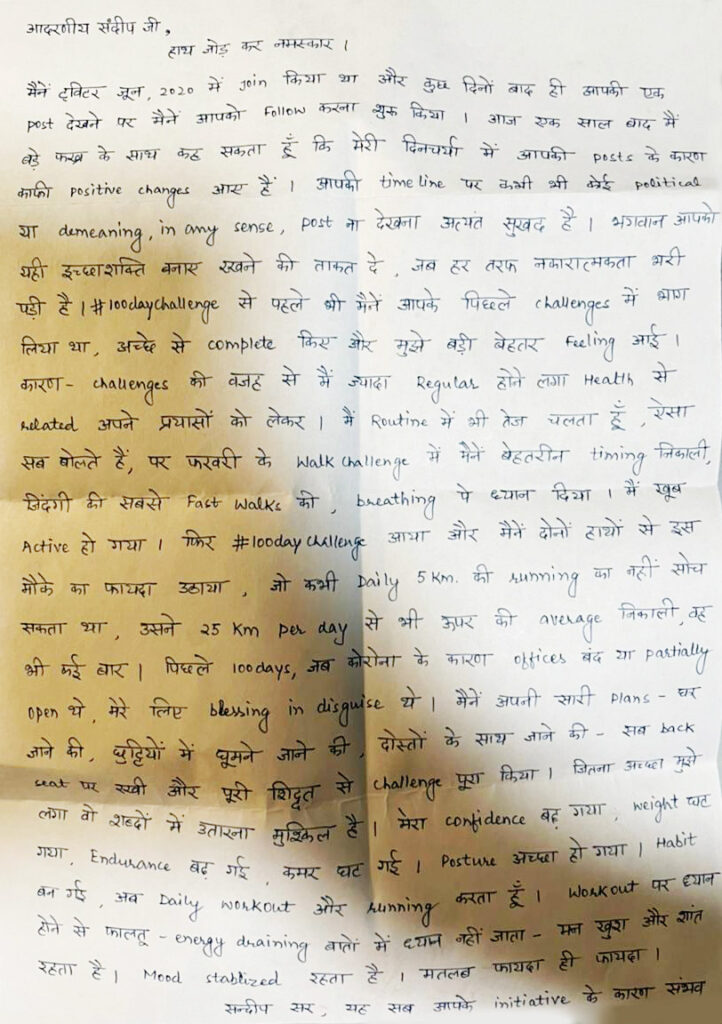 आदरणीय संदीप जी,
हाथ जोड़ कर नमस्कार।
मैंने ट्विटर जून, 2020 में join किया था और कुछ दिनों बाद ही आपकी एक
post देखने पर मैंने आपको Follow करना शुरू किया। आज एक साल बाद मैं
बड़े फख्र के साथ कह सकता हूँ कि मेरी दिनचर्या में आपकी posts के कारण
काफी positive changes आए हैं। आपकी timeline पर कभी भी कोई political
या demeaning, in any sense, post ना देखना अत्यंत सुखद है। भगवान आपको
यही इच्छाशक्ति बनाए रखने की ताकत दे, जब हर तरफ नकारात्मकता भरी
पड़ी है। #100daychallenge से पहले भी मैंने आपके पिछले challenges में भाग
लिया था, अच्छे से complete किए और मुझे बड़ी बेहतर Feeling आई।
कारण - challenges की वजह से मैं ज्यादा Regular होने लगा Health से
related अपने प्रयासों को लेकर। मैं Routine में भी तेज चलता हूँ, ऐसा
सब बोलते हैं, पर फरवरी के Walk Challenge में मैंने बेहतरीन timing निकाली,
जिंदगी की सबसे Fast Walks की, breathing पे ध्यान दिया। मैं खूब
Active हो गया। फिर #100day Challenge आया और मैंने दोनों हाथों से इस
मौके का फायदा उठाया, जो कभी Daily 5 Km. की running का नहीं सोच
सकता था, उसने 25 Km per day से भी ऊपर की average निकाली, वह
भी कई बार। पिछले 100days, जब कोरोना के कारण offices बंद या partially
open थे, मेरे लिए blessing in disguise थे। मैंने अपनी सारी Plans - घर
जाने की, छुट्टियों में घूमने जाने की, दोस्तों के साथ जाने की - सब back
seat पर रखी और पूरी शिद्दत से challenge पूरा किया। जितना अच्छा मुझे
लगा वो शब्दों में उतारना मुश्किल है। मेरा confidence बढ़ गया, weight घट
गया, Endurance बढ़ गई, कमर घट गई। Posture अच्छा हो गया। Habit
बन गई, अब Daily workout और running करता हूँ। Workout पर ध्यान
होने से फालतू - energy draining बातों में ध्यान नहीं जाता - मन खुश और शांत
रहता है। Mood stablized रहता है। मतलब फायदा ही फायदा।
सन्दीप सर, यह सब आपके initiative के कारण संभव